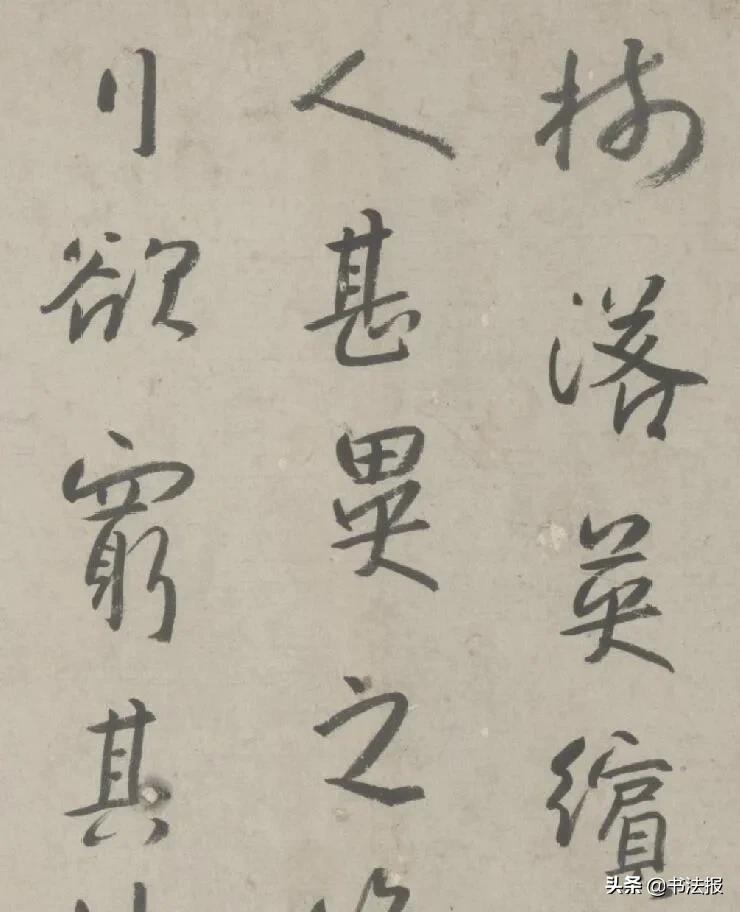 樹落英繽
人甚異之
行欲窮其
头条 @书法报